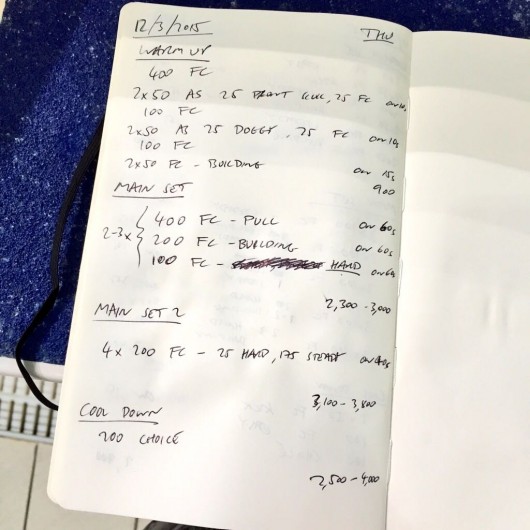 12/3/2015 THU
WARM UP
400 FC
2x50 AS 25 FRONT SCULL, 25 FC ON 10s
100 FC
2x50 AS 25 DOGGY, 25 FC ON 10s
100 FC
2x50 FC - BUILDING ON 15s
900
MAIN SET
2-3x { 400 FC - PULL ON 60s
200 FC - BUILDING ON 60s
100 FC - HARD ON 60s
2,300 - 3,000
MAIN SET 2
4x 200 FC - 25 HARD, 175 STEADY ON
3,100 - 3,800
COOL DOWN
200 CHOICE
2,500 - 4,000